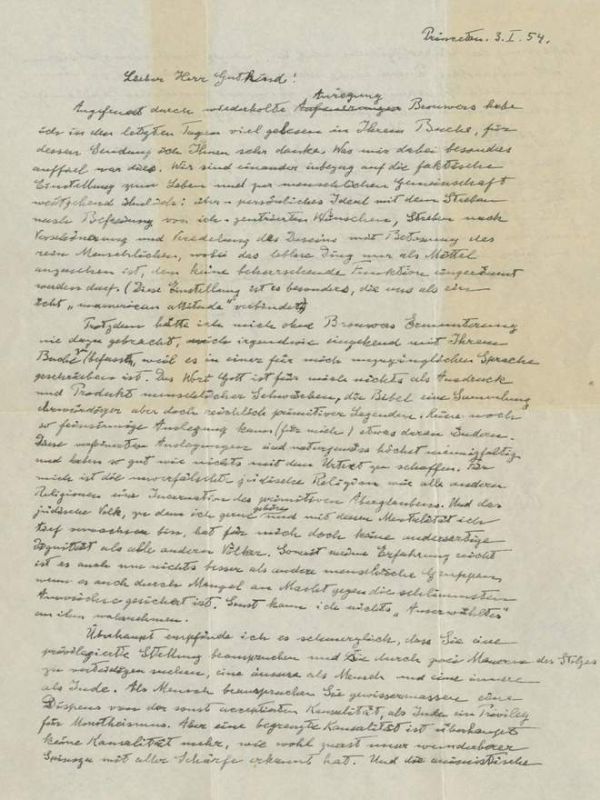 Princeton. 3. I. 54.
Lieber Herr Gutkind!
Anregung
Angefeuert durch wiederholte Brouwers habe
ich in den letzten Tagen viel gelesen in Ihrem Buche, für
dessen Sendung ich Ihnen sehr danke. Was mir dabei besonders
auffiel war dies. Wir sind einander inbezug auf die faktische
Einstellung zum Leben und zur menschlichen Gemeinschaft
weitgehend ähnlich: über-persönliches Ideal mit dem Streben
nach Befreiung von ich-zentrierten Wünschen, Streben nach
Verschönerung und Veredelung des Daseins mit Betonung des
rein Menschlichen, wobei das leblose Ding nur als Mittel
anzusehen ist, dem keine beherrschende Funktion eingeräumt
werden darf. (Diese Einstellung ist es besonders, die uns als ein
echt „unamerican attitude" verbindet)
Trotzdem hätte ich mich ohne Brouwers Ermunterung
nie dazu gebracht, mich irgendwie eingehend mit Ihrem
Buche befasst, weil es in einer für mich unzugänglichen Sprache
geschrieben ist. Das Wort Gott ist für mich nichts als Ausdruck
und Produkt menschlicher Schwächen, die Bibel eine Sammlung
ehrwürdiger aber doch reichlich primitiver Legenden. Keine noch
so feinsinnige Auslegung kann (für mich) etwas daran ändern.
Diese verfeinerten Auslegungen sind naturgemäss höchst mannigfaltig
und haben so gut wie nichts mit dem Urtext zu schaffen. Für
mich ist die unverfälschte jüdische Religion wie alle anderen
Religionen eine Incarnation des primitiven Aberglaubens. Und das
jüdische Volk, zu dem ich gerne gehöre und mit dessen Mentalität ich
tief verwachsen bin, hat für mich doch keine andersartige
Dignität als alle anderen Völker. Soweit meine Erfahrung reicht
ist es auch um nichts besser als andere menschliche Gruppen,
wenn es auch durch Mangel an Macht gegen die schlimmsten
Auswüchse gesichert ist. Sonst kann ich nichts „Auserwähltes"
an ihm wahrnehmen.
Überhaupt empfinde ich es schmerzlich, dass Sie eine
privilegierte Stellung beanspruchen und Sie durch zwei Mauern des Stolzes
zu verteidigen suchen, eine äussere als Mensch und eine innere
als Jude. Als Mensch beanspruchen Sie gewissermassen einen
Dispens von der sonst acceptierten Kausalität, als Jude ein Privileg
für Monotheismus. Aber eine begrenzte Kausalität ist überhaupt
keine Kausalität mehr, wie wohl zuerst unser wunderbarer
Spinoza mit aller Schärfe erkannt hat. Und die animistische